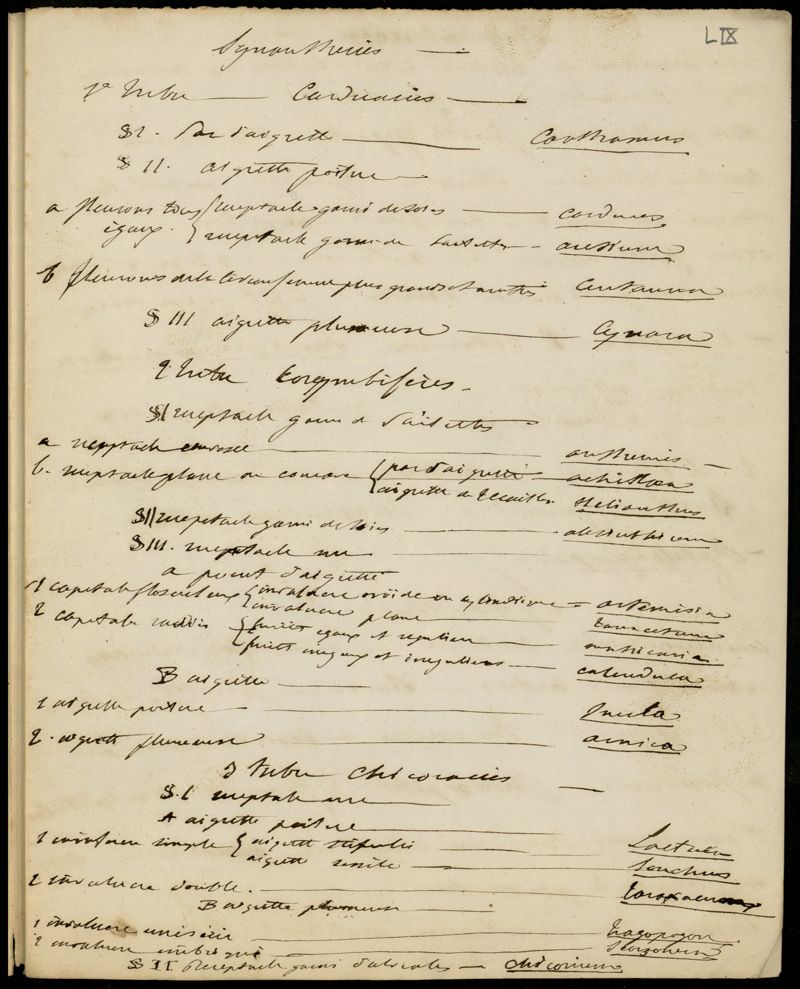 LIX
Synanthérées —
1e Tribu — Carduacées —
§ I. Pas d'aigrette — Carthamus
§ II. aigrette poilue —
a fleurons tous { receptacle garni de soies — carduus
égaux. { receptacle garni de — arctium
b fleurons de la circonférence plus grands et — Centaurea
§ III aigrette plumeuse — Cynara
2 Tribu Corymbifères —
§ I receptacle garni de —
a receptacle convexe — anthemis —
b. receptacle plane ou concave { pas d'aigrette — achillea
{ aigrette de Ecailles. Helianthus
§ II receptacle garni de soies — absinthium
§ III. receptacle nu —
a point d'aigrette
1 capitule flosculeux { involucre ovoide ou cylindrique = artemisia
{ involucre plane — tanacetum
2 capitule radiés { fruits egaux et reguliers — matricaria.
{ fruits inegaux et irreguliers — calendula
B aigrette —
1 aigrette poilue — Inula
2. aigrette plumeuse — arnica
3 tribu Chicoracées —
§. I receptacle nu —
A aigrette poilue —
1 involucre simple { aigrette stipitée — Lactuca
aigrette sessile — Sonchus
2 involucre double. — taraxacum
B aigrette plumeuse —
1 involucre unisérié — tragopogon
2 involucre imbriqué — Scorzonera
§ II Receptacle garni d'alvéoles — chicorium